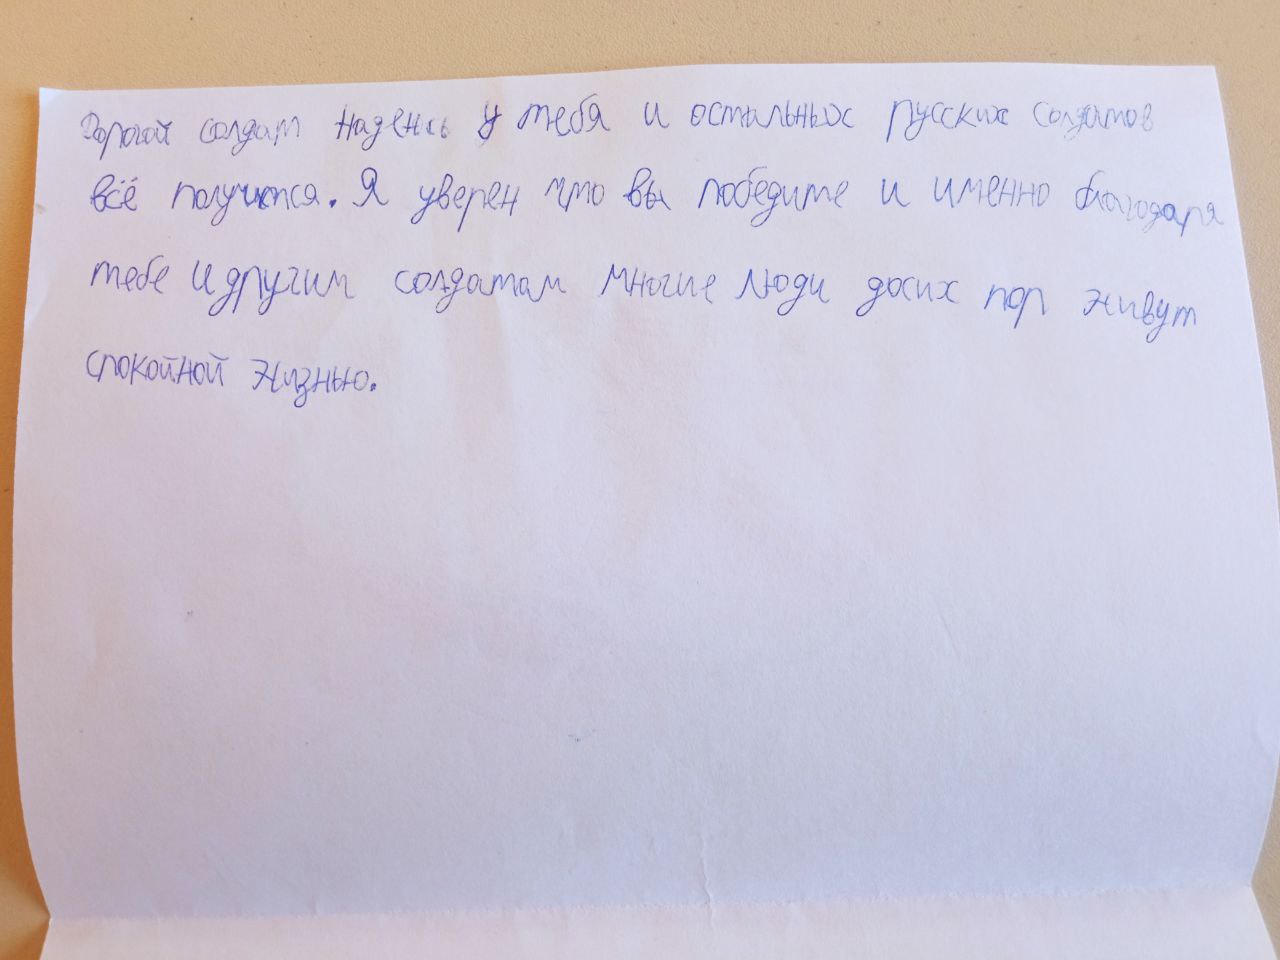 Дорогой солдат надеюсь у тебя и остальных русских солдатов
всё получится. Я уверен что вы победите и именно благодаря
тебе и другим солдатам многие люди досих пор живут
спокойной жизнью.